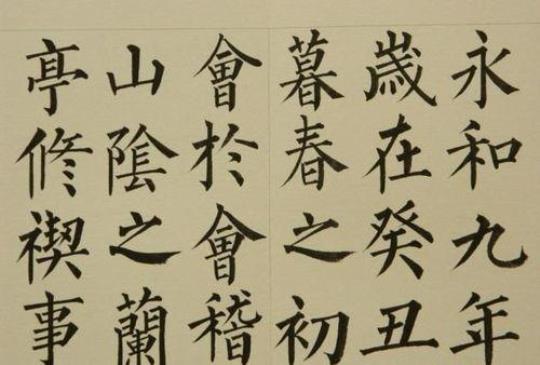 永和九年
歲在癸丑
暮春之初
會於會稽
山陰之蘭
亭修禊事